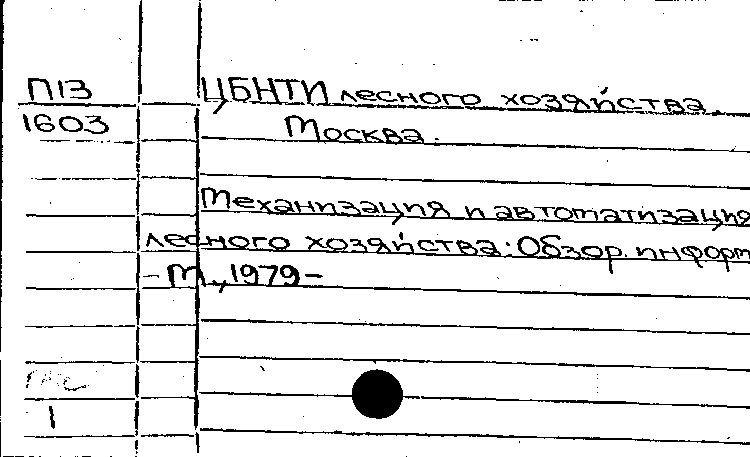 П13 ЦБНТИ лесного хозяйства.
1603 Москва.
Механизация и автоматизация
лесного хозяйства: Обзор. информ
- М., 1979-
1